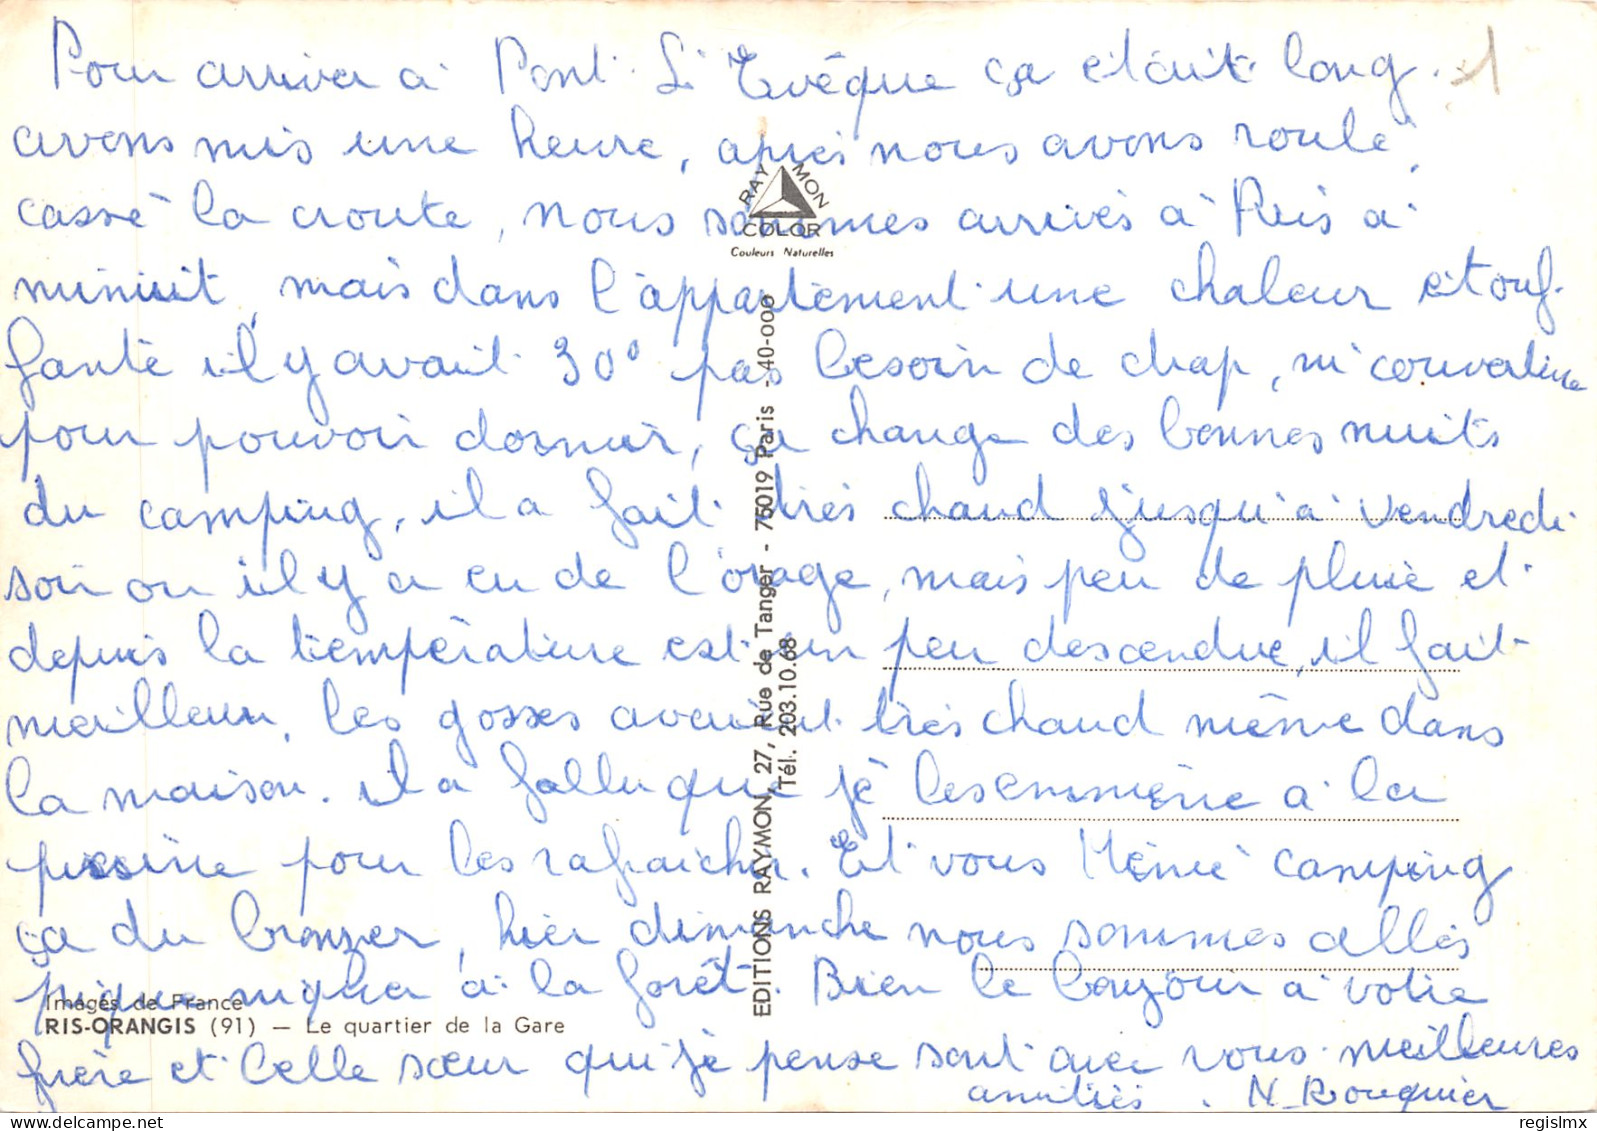 Pour arriver à Pont L'Evêque ça était long.
avons mis une heure, après nous avons roulé,
cassé la croute, nous sommes arrivés à Ris à
minuit, mais dans l'appartement une chaleur étouf-
fante il y avait 30° pas besoin de drap, ni couverture
pour pouvoir dormir, ça change des bonnes nuits
du camping, il a fait très chaud jusqu'à vendredi
soir ou il y a eu de l'orage, mais peu de pluie et
depuis la température est un peu descendue, il fait
meilleur, les gosses avaient très chaud même dans
la maison. il a fallu que je les emmène à la
piscine pour les rafraichir. Et vous Mémé camping
ça du bronzer, hier dimanche nous sommes allés
pique niquer à la forêt. Bien le bonjour à votre
frère et belle sœur qui je pense sont avec vous. meilleures
amitiés. N. Rouquier
1
RAYMON
COLOR
Couleurs Naturelles
EDITIONS RAYMON, 27, Rue de Tanger - 75019 Paris - 40-000
Tél. 203.10.68
Images de France
RIS-ORANGIS (91) — Le quartier de la Gare
regislmx